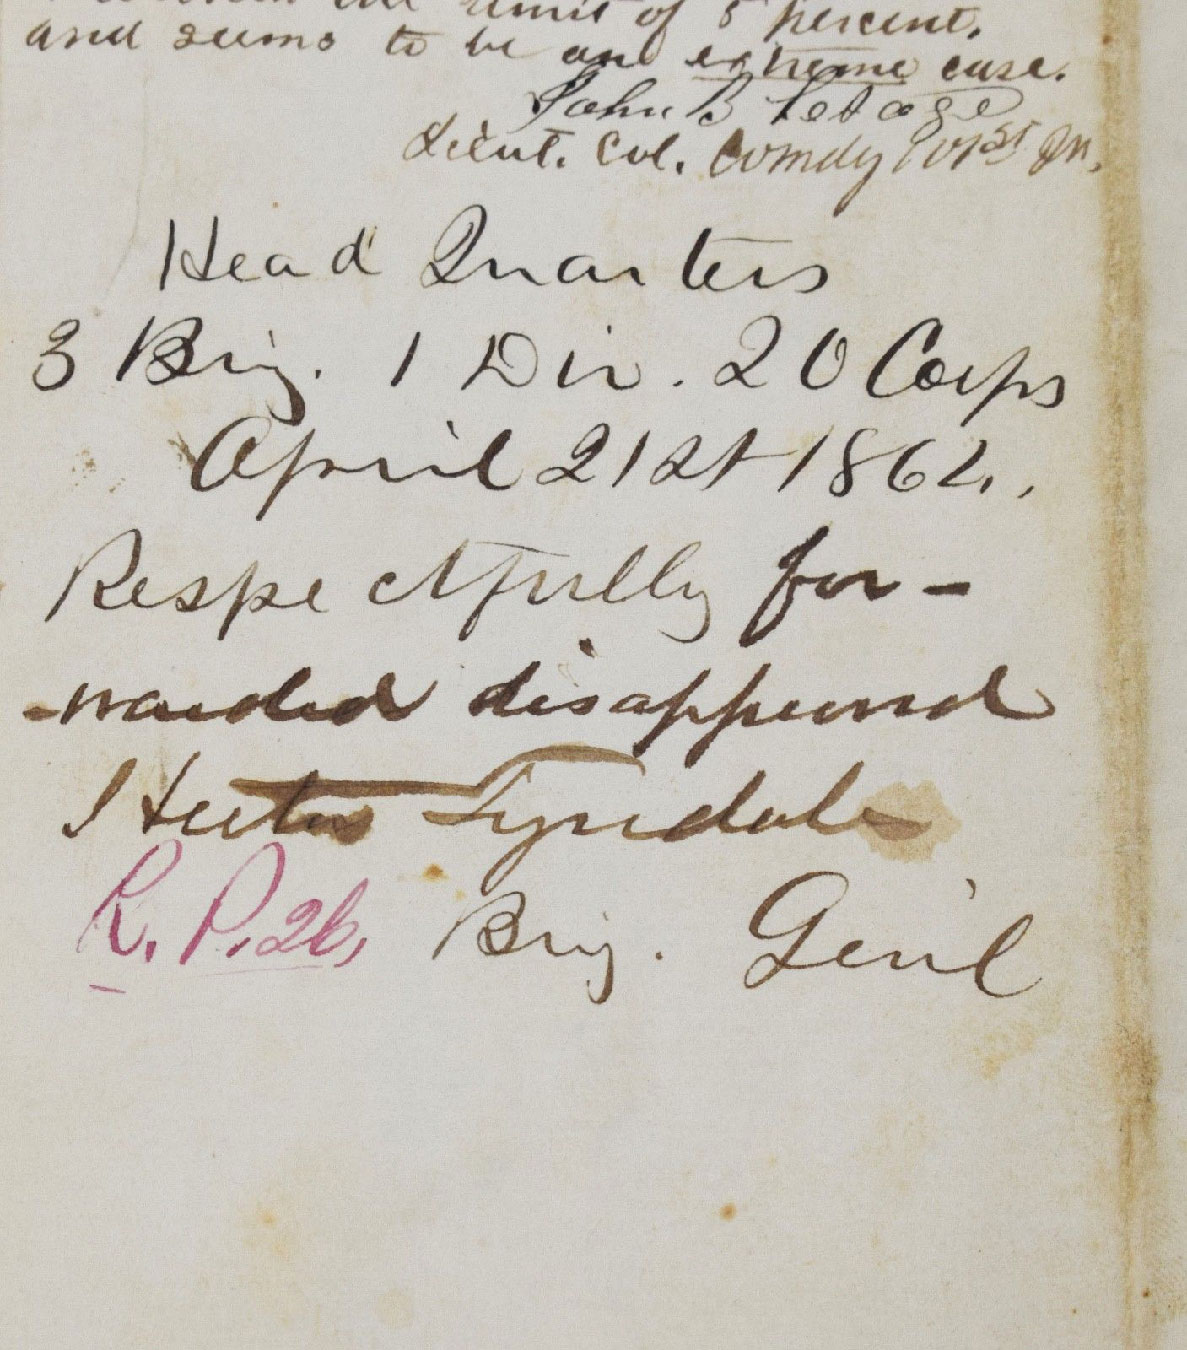 limit of 5 percent.
and seems to be an extreme case.
John B LeSage
Lieut. Col. Comdg 101st Ill.
Head Quarters
3 Brig. 1 Div. 20 Corps
April 21st 1864.
Respectfully for-
-warded disapproved
Hector Tyndale
R. P. 26, Brig. Gen'l